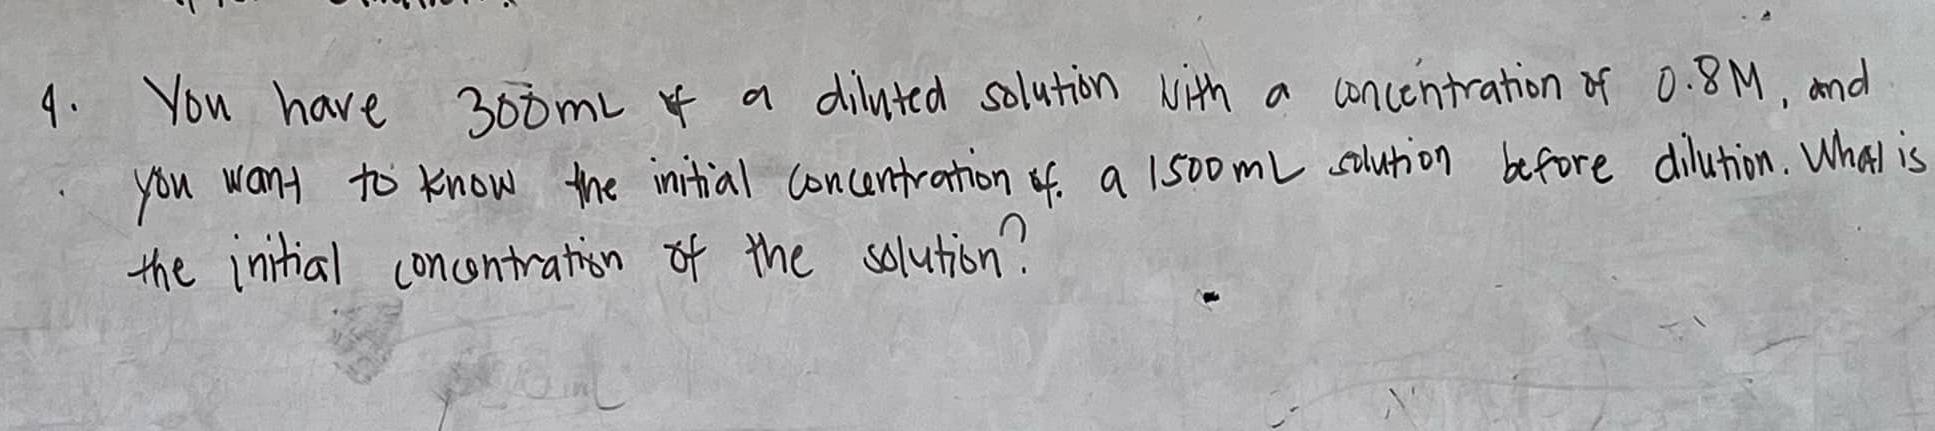 4. You have 300mL of a diluted solution with a concentration of 0.8M, and
you want to know the initial concentration of. a 1500mL solution before dilution. What is
the initial concentration of the solution?